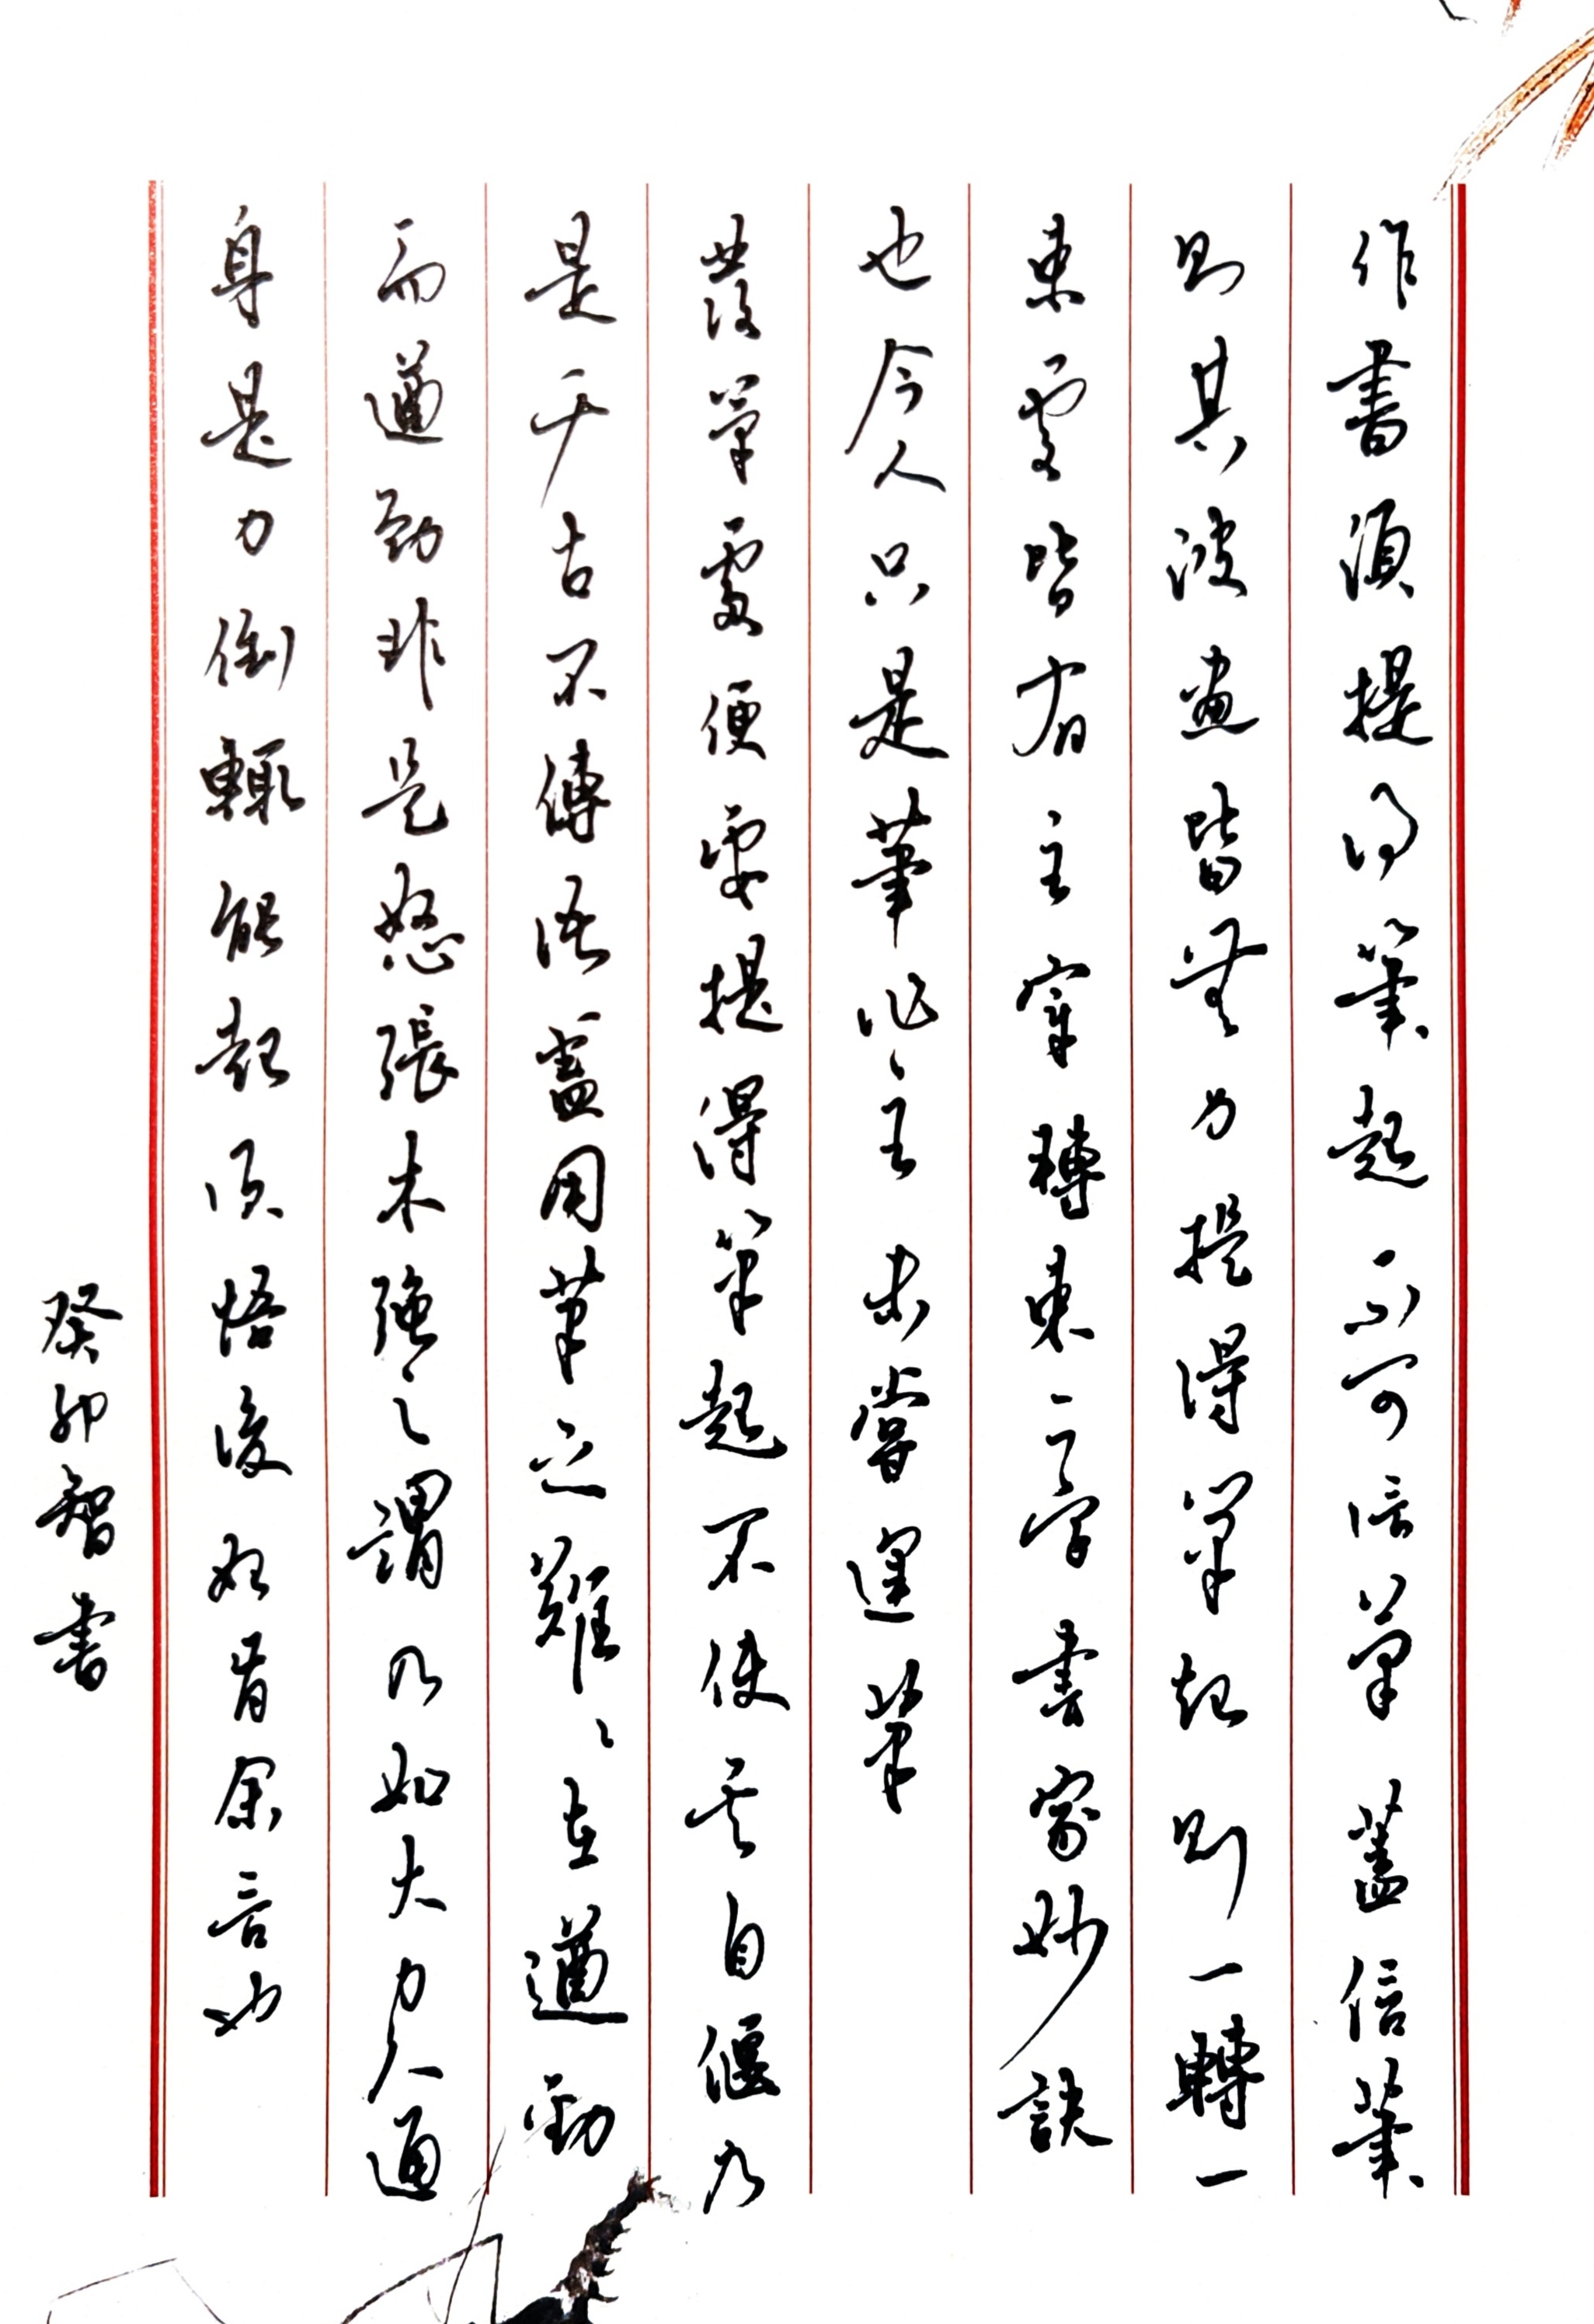 作書須提得筆起不可信筆蓋信筆
則其波畫皆無力提得筆起則一轉一
束處皆有主宰轉束二字書家妙訣
也今人只是筆作主未嘗運筆
發筆處便要提得筆起不使其自偃乃
是千古不傳語蓋用筆之難難在遒勁
而遒勁非是怒張木強之謂乃如大力人通
身是力倒輒能起須悟後始肯余言也
癸卯智書